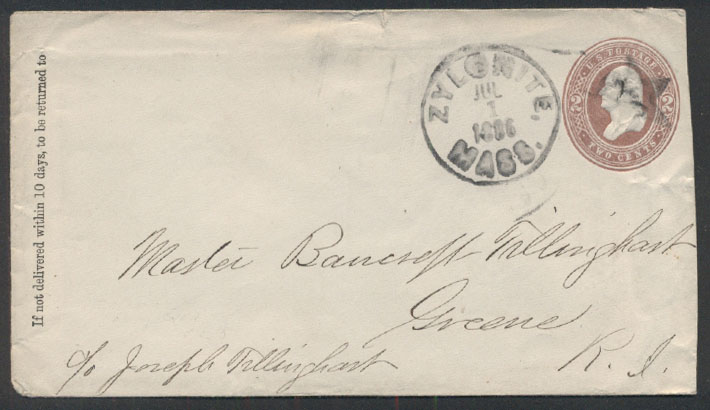 If not delivered within 10 days, to be returned to
ZYLONITE,
JUL
1
1886
MASS.
U.S. POSTAGE
2 2
TWO CENTS
Master Bancroft Tillinghast
Greene
R. I.
c/o Joseph Tillinghast